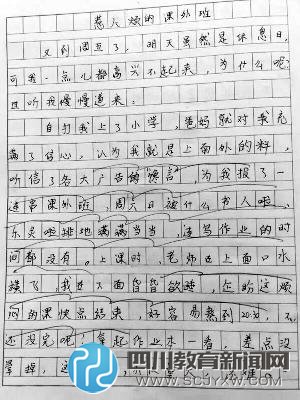 惹人烦的课外班
又到周五了，明天虽然是休息日，
可我一点儿都高兴不起来，为什么呢？
且听我慢慢道来。
自打我上了小学，爸妈就对我充
满了信心，认为我就是上面外的料，
听信了各大广告的谎言，为我报了一
连串课外班，周六日被什么书人啦，
乐奥啦排地满满当当，连写作业的时
间都没有。上课时，老师在上面口水
横飞，我在下面昏昏欲睡，在盼这烦
闷的课快点结束，好容易熬到20:30，不，
还没完呢！拿起作业本一看，差点没
晕掉，这
四川教育新闻网
WWW.SCJYXW.COM